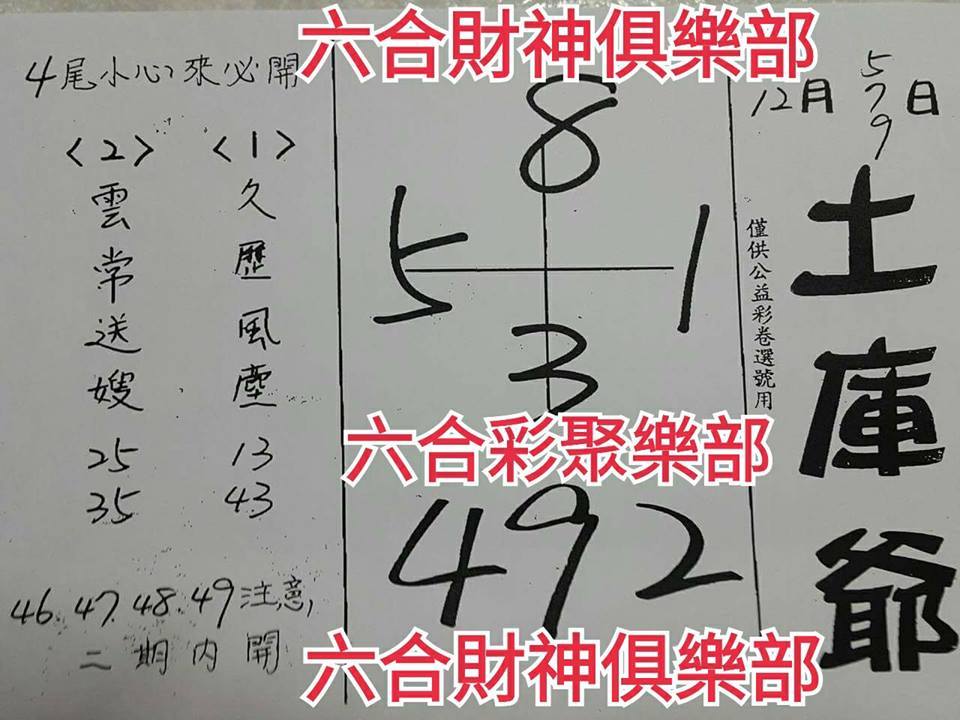 六合財神俱樂部
12月 5 7 9 日
土庫爺
僅供公益彩卷選號用
8
5 1
3
六合彩聚樂部
492
六合財神俱樂部
4尾小心來必開
〈1〉
久歷風塵
13
43
〈2〉
雲常送嫂
25
35
46.47.48.49注意,
二期內開